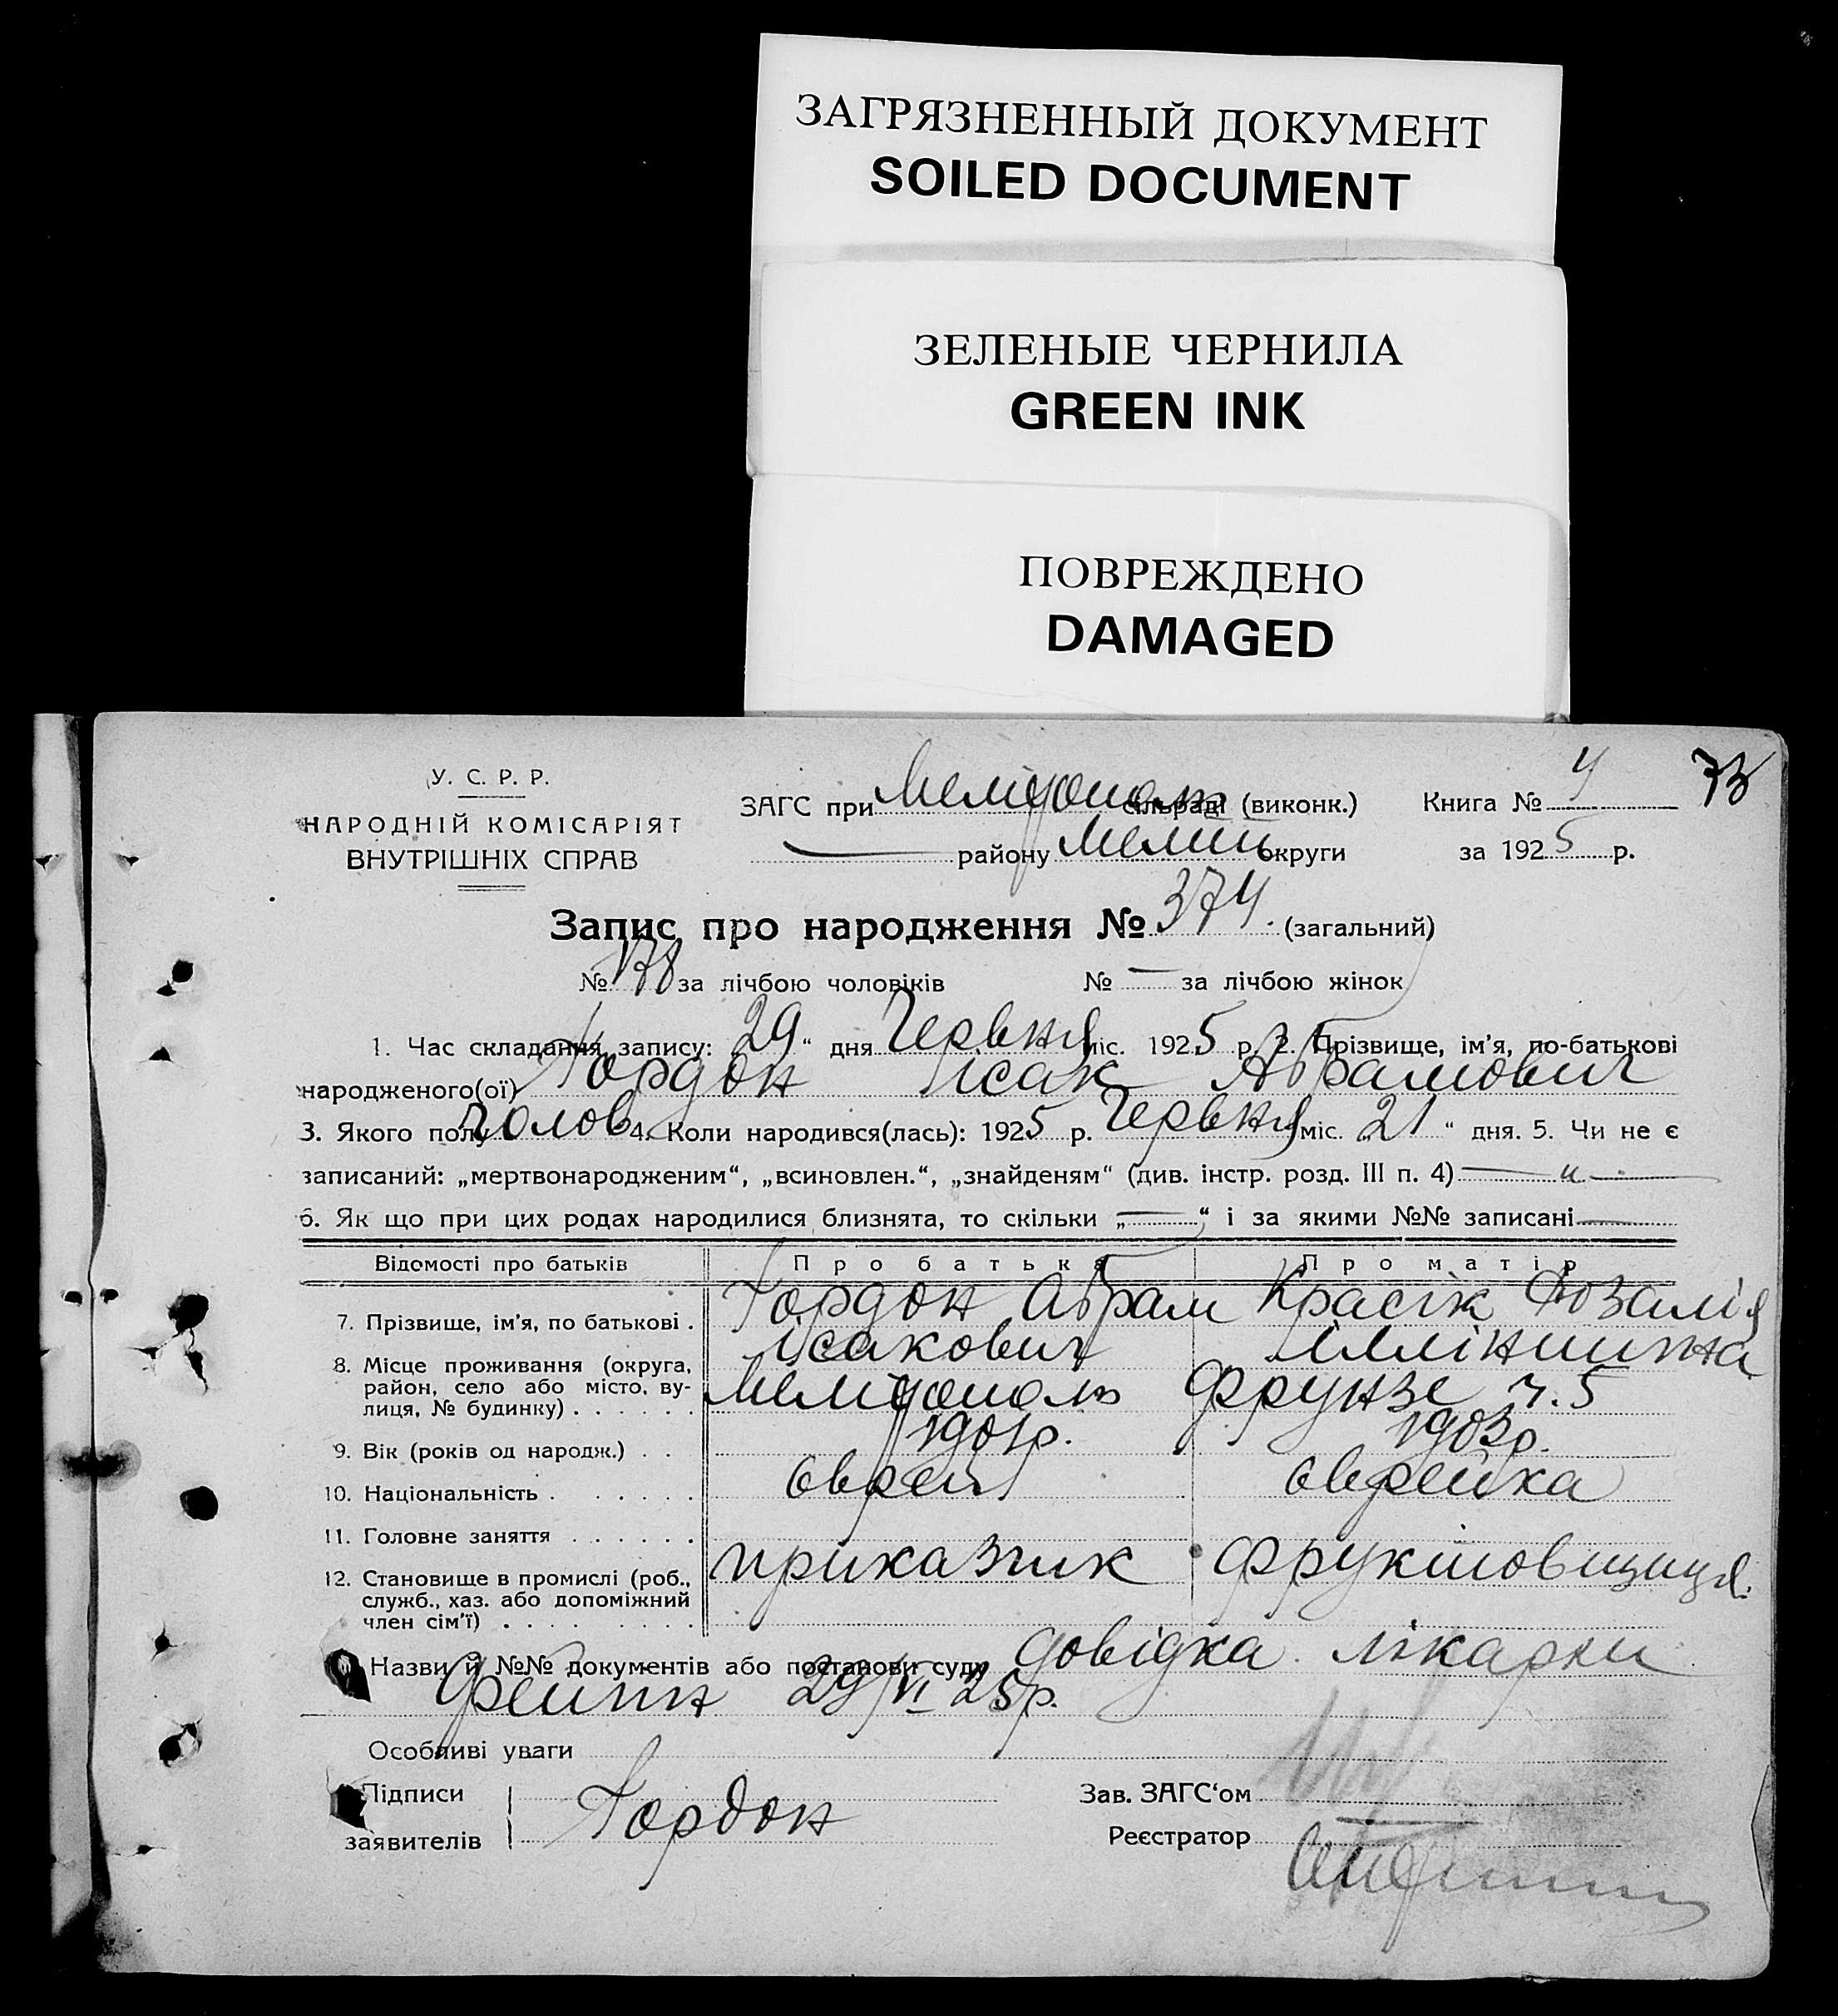 ЗАГРЯЗНЕННЫЙ ДОКУМЕНТ
SOILED DOCUMENT
ЗЕЛЕНЫЕ ЧЕРНИЛА
GREEN INK
ПОВРЕЖДЕНО
DAMAGED
73
У. С. Р. Р.
НАРОДНІЙ КОМІСАРІЯТ
ВНУТРІШНІХ СПРАВ
ЗАГС при Мелітополь сільраді (виконк.) Книга № 4
— району Меліт округи за 1925 р.
Запис про народження № 374. (загальний)
№ 178 за лічбою чоловіків № — за лічбою жінок
1. Час складання запису: 29 “ дня Червня міс. 1925 р. 2. Прізвище, ім'я, по-батькові
народженого(ої) Гордон Ісак Абрамович
3. Якого полу чолов 4. Коли народився(лась): 1925 р. Червня міс. „21 “ дня. 5. Чи не є
записаний: „мертвонародженим“, „всиновлен.“, „знайденям“ (див. інстр. розд. III п. 4) — „ —
6. Як що при цих родах народилися близнята, то скільки „—“ і за якими №№ записані —
Відомості про батьків Про батька Про матір
7. Прізвище, ім'я, по батькові . Гордон Абрам Ісакович Красік Розалія
8. Місце проживання (округа, район, село або місто, вулиця, № будинку) . . . . . . Мелітополь Фрунзе ч. 5
9. Вік (років од народж.) . . 1901р. 1903р.
10. Національність . . . . . . єврей єврейка
11. Головне заняття . . . . . .
12. Становище в промислі (роб., служб., хаз. або допоміжний член сім'ї) . . . . . . . . приказчик фруктовщиця.
Назви й №№ документів або постанови суду довідка лікарки
29/VI 25р.
Особливі уваги
Підписи
заявителів Гордон
Зав. ЗАГС‘ом
Реєстратор